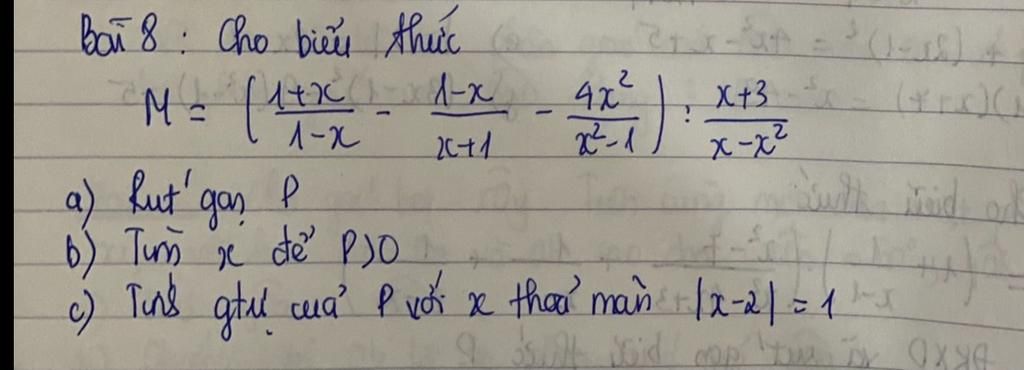 Bài 8 : Cho biểu thức
M = ( (1+x)/(1-x) - (1-x)/(x+1) - 4x²/(x²-1) ) : (x+3)/(x-x²)
a) Rút gọn P
b) Tìm x để P>0
c) Tính gtrị của P với x thoả mãn |x-2| = 1